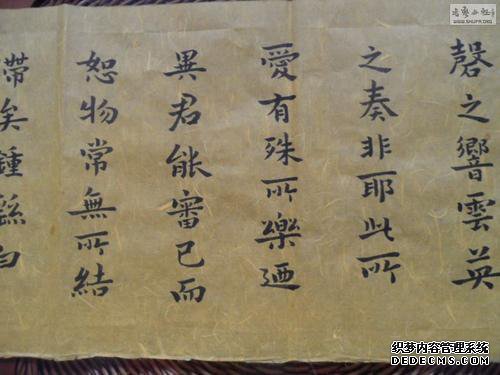 磬之響雲英
之奏非耶此所
愛有殊所樂迺
異君能審己而
恕物常無所結
滯矣鍾繇白
织梦内容管理系统
DEDECMS.COM